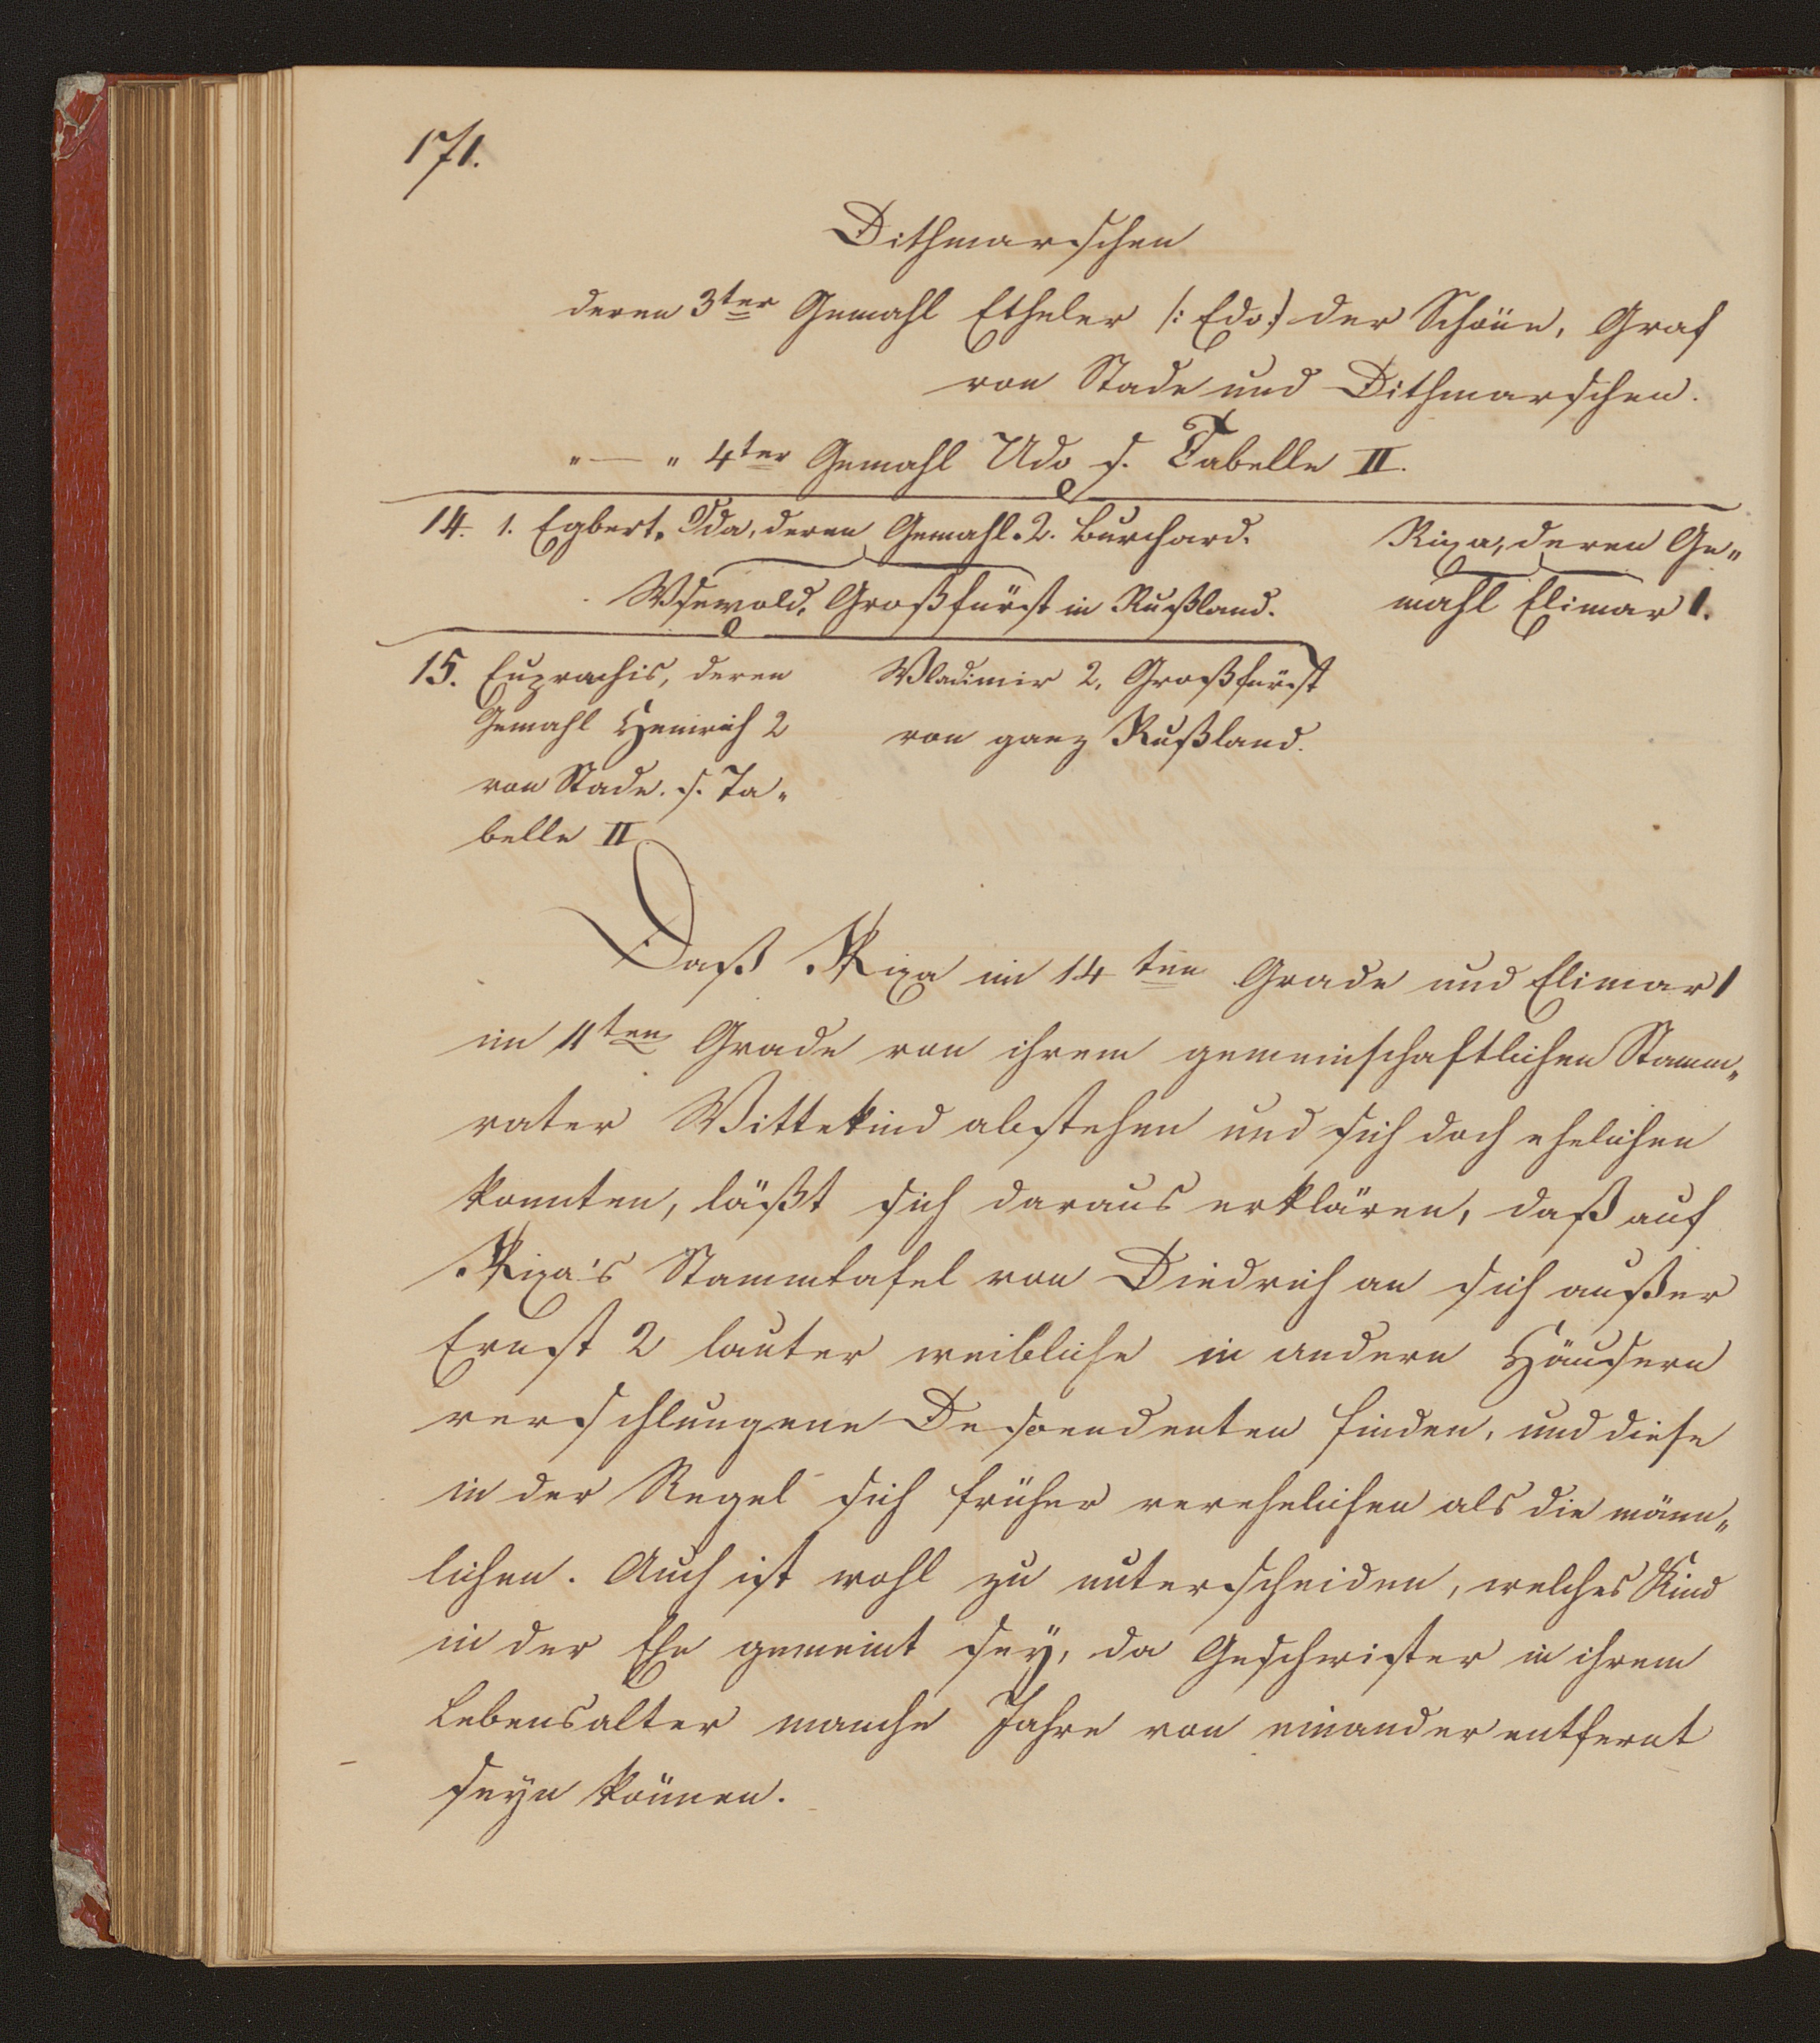 171.
Dithmarschen
deren 3ter Gemahl Etheler /: Edo :/ der Schöne, Graf
von Stade und Dithmarschen.
„ — „ 4ter Gemahl Udo s. Tabelle II.
14. 1. Egbert. Ida, deren Gemahl. 2. Burchard. Rixa, deren Ge„
Wsewold, Großfürst in Rußland. mahl Elimar 1.
15. Euprachis, deren Wladimir 2, Großfürst
Gemahl Heinrich 2 von ganz Rußland.
von Stade. s. Ta„
belle II
Daß Rixa im 14ten Grade und Elimar 1
im 11ten Grade von ihrem gemeinschaftlichen Stamm„
vater Wittekind abstehen und sich doch ehelichen
konnten, läßt sich daraus erklären, daß auf
Rixa's Stammtafel von Diedrich an sich außer
Ernst 2 lauter weibliche in andern Häusern
verschlungene Descendenten finden, und diese
in der Regel sich früher verehelichen als die männ„
lichen. Auch ist wohl zu unterscheiden, welches Kind
in der Ehe gemeint sey, da Geschwister in ihrem
Lebensalter manche Jahre von einander entfernt
seyn können.